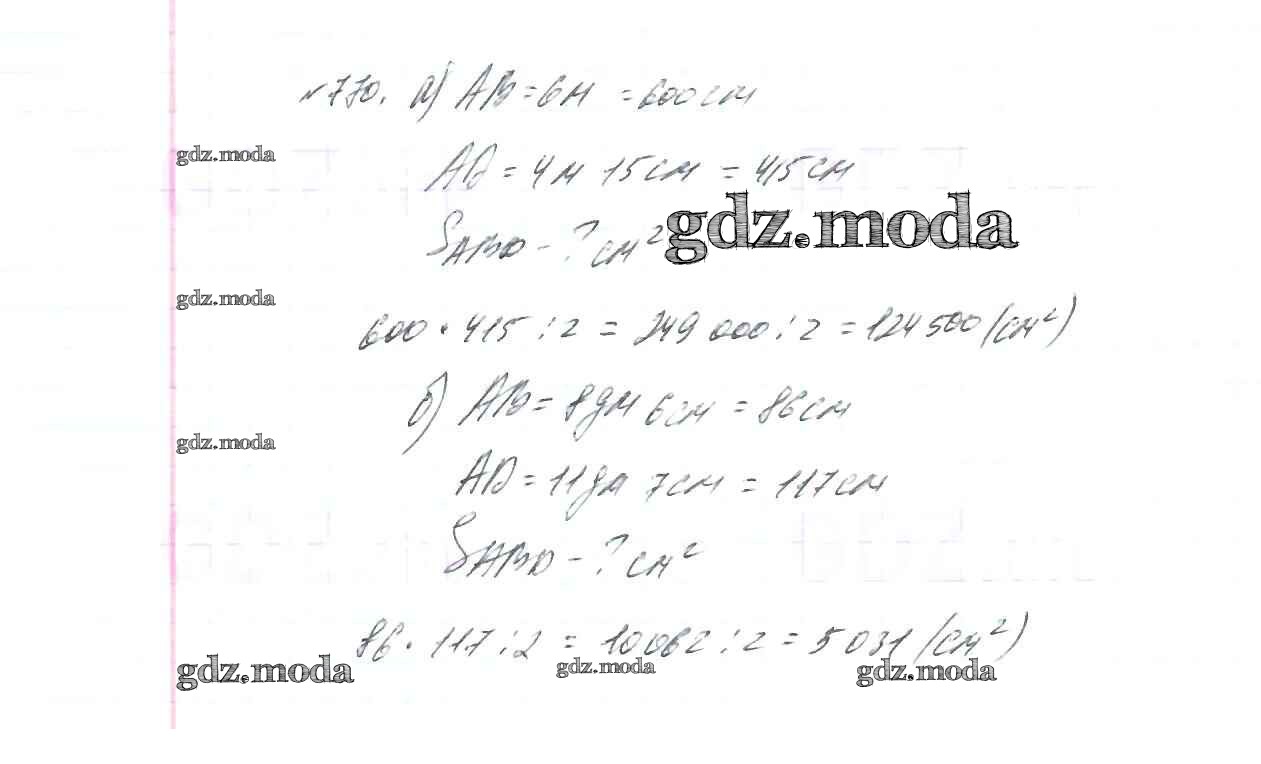 №770. а) AB = 6м = 600см
gdz.moda
AD = 4м 15см = 415см
gdz.moda
SABD - ? см²
gdz.moda
600 · 415 : 2 = 249 000 : 2 = 124 500 (см²)
б) AB = 8дм 6см = 86см
gdz.moda
AD = 11дм 7см = 117см
SABD - ? см²
86 · 117 : 2 = 10062 : 2 = 5 031 (см²)
gdz.moda gdz.moda gdz.moda